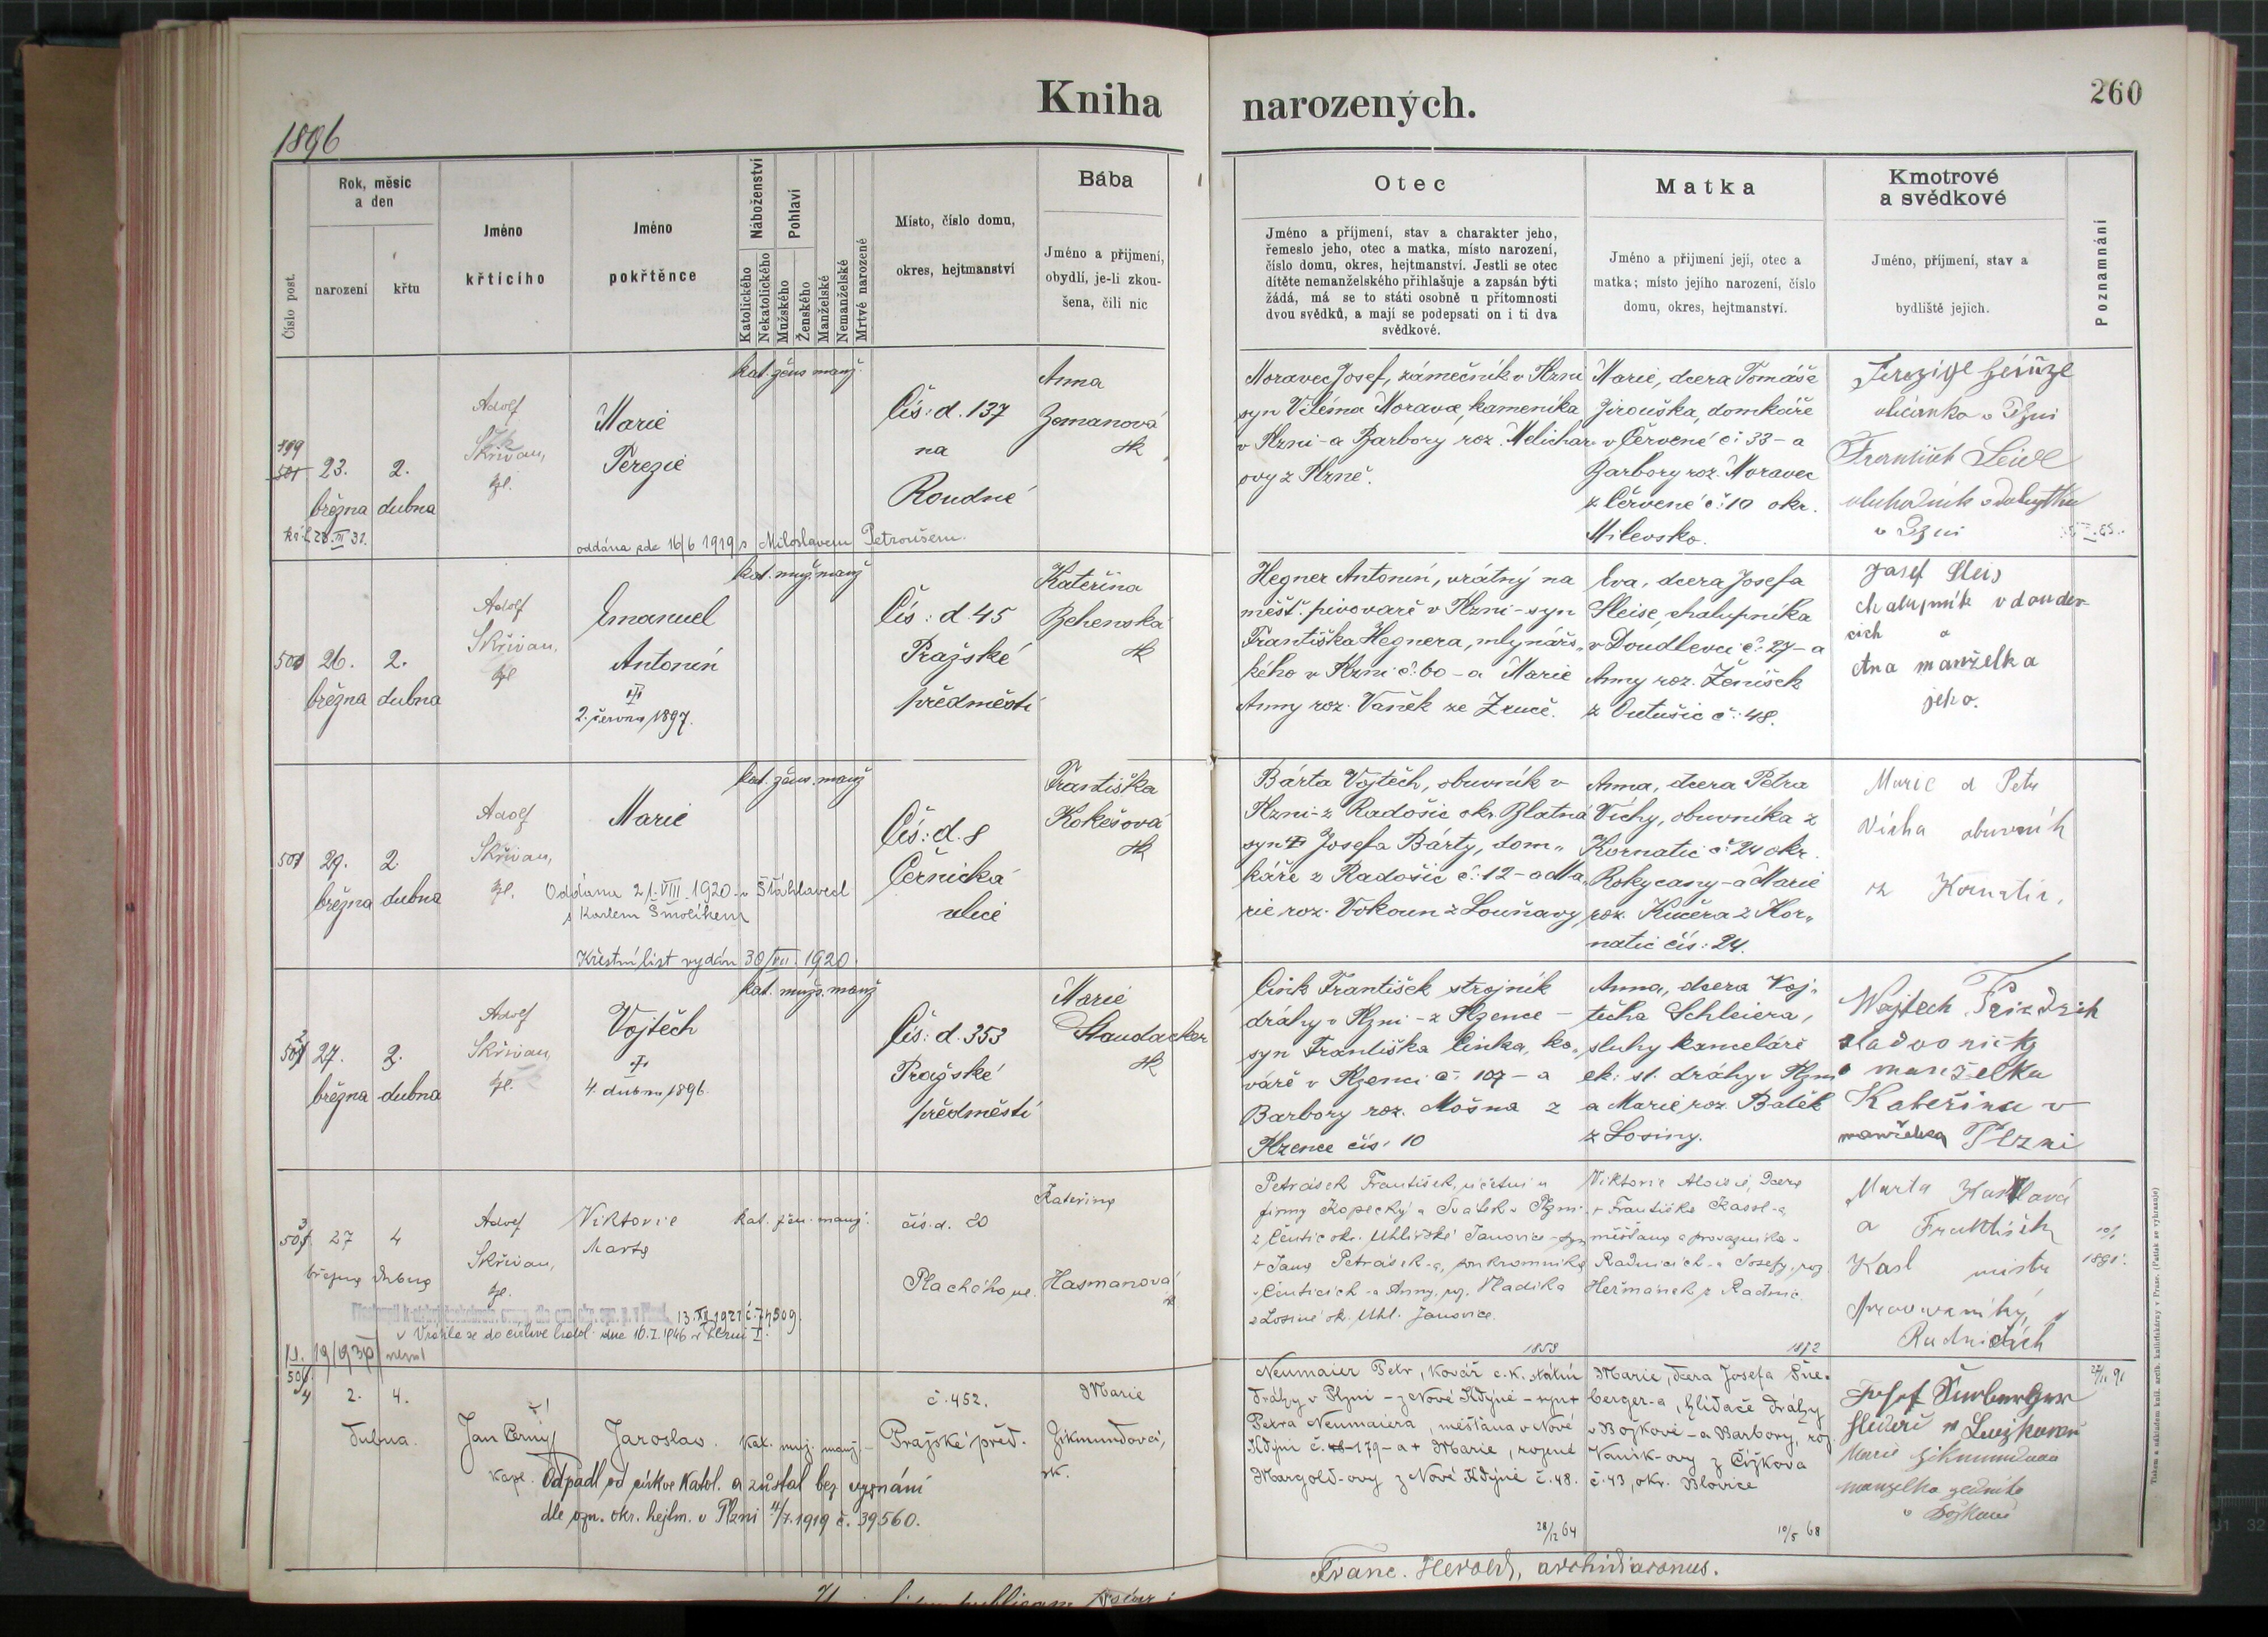 Kniha narozených.
260
1896
Číslo post.
Rok, měsíc a den
narození
křtu
Jméno křtícího
Jméno pokřtěnce
Náboženství
Katolického
Nekatolického
Pohlaví
Mužského
Ženského
Manželské
Nemanželské
Mrtvě narozené
Místo, číslo domu,
okres, hejtmanství
Bába
Jméno a příjmení,
obydlí, je-li zkou-
šena, čili nic
Otec
Jméno a příjmení, stav a charakter jeho,
řemeslo jeho, otec a matka, místo narození,
číslo domu, okres, hejtmanství. Jestli se otec
dítěte nemanželského přihlašuje a zapsán býti
žádá, má se to státi osobně u přítomnosti
dvou svědků, a mají se podepsati on i ti dva
svědkové.
Matka
Jméno a příjmení její, otec a
matka; místo jejího narození, číslo
domu, okres, hejtmanství.
Kmotrové
a svědkové
Jméno, příjmení, stav a
bydliště jejich.
Poznamnání
499
501
23.
března
2.
dubna
Adolf
Skřivan,
kpl.
Marie
Terezie
kat. žens manž.
Čís: d. 137
na
Roudné
Anna
Zemanová
zk
oddána zde 16/6 1919 s Miloslavem Petroušem.
Moravec Josef, zámečník v Plzni
syn Viléma Moravce, kameníka
v Plzni - a Barbory roz. Melichar
ovy z Plzně.
Marie, dcera Tomáše
Jirouška, domkáře
v Červené č: 33 - a
Barbory roz. Moravec
z Červené č: 10 okr.
Milevsko.
František Seidl
obchodník s dobytkem
v Plzni
500
26.
března
2.
dubna
Adolf
Skřivan,
kpl
Emanuel
Antonín
2. června 1897.
kat. muž. manž
Čís: d. 45
Pražské
předměstí
Kateřina
Zehenská
zk
Hegner Antonín, vrátný na
měšť. pivovaře v Plzni - syn
Františka Hegnera, mlynářs-
kého v Plzni č: 60 - a Marie
Anny roz. Vaněk ze Zruče.
Eva, dcera Josefa
Sleise, chalupníka
v Doudlevci č: 27 - a
Anny roz. Ženíšek
z Vutušic č: 48.
Josef Sleis
chalupník v doudev
cich a
Ana manželka
jeho.
501
29.
března
2.
dubna
Adolf
Skřivan,
kpl.
Marie
kat. žens. manž
Oddána 21. VIII. 1920. v Šťáhlavech
s Karlem Šmolíkem
Křestní list vydán 30/VII. 1920.
Čís: d. 8
Černická
ulice
Františka
Kokešová
zk
Bárta Vojtěch, obuvník v
Plzni - z Radošic okr. Blatná
syn Josefa Bárty, dom-
káře z Radošic č: 12 - a Ma-
rie roz. Vokoun z Louňavy
Anna, dcera Petra
Víchy, obuvníka z
Kornatic č: 24 okr.
Rokycany - a Marie
roz. Kučera z Kor-
natic čís: 24.
Marie a Petr
Vícha obuvník
z Kornatic,
502
27.
března
2.
dubna
Adolf
Skřivan,
kpl.
Vojtěch
4. dubna 1896.
kat. mužs. manž
Čís: d. 353
Pražské
předměstí
Marie
Staudacher
zk
Cink František strojník
dráhy v Plzni - z Plzence -
syn Františka Cinka, ko-
váře v Plzenci č: 107 - a
Barbory roz. Mošna z
Plzence čís: 10
Anna, dcera Voj-
těcha Schleiera,
sluhy kanceláře
ck: st. dráhy v Plzni
a Marie roz. Batěk
z Losiny.
Wojtech Friedrich
sladovnický
a manželka
Kateřina v
manželka Plzni
503
27
března
4
dubna
Adolf
Skřivan,
kpl.
Viktorie
Marta
kat. žen. manž.
čís. d. 20
Plachého ul.
Kateřina
Hasmanová
13. XII 1921 č. 74509.
Vrátila se do církve katol. dne 10. I. 1946 v Plzni I.
Petrásek František, účetní u
firmy Kopecký a Svátek v Plzni
z Čentic okr. Uhlířské Janovice - syn
+ Jana Petrásek-a, soukromníka
v Čenticích - a Anny, roz. Vladika
z Losiné ok. Uhl. Janovice.
1858
Viktorie Aloisie, dcera
+ Františka Kassl-a
měšťana a provazníka v
Radnicích - a Josefy, roz.
Heřmánek z Radnic.
1872
Marta Kasslová
a František
Kasl mistr
provaznický
Radnicích
504
2.
dubna.
4.
Jan Černý,
kapl.
Jaroslav.
kat. muž. manž. -
č. 452.
Pražské před.
Marie
Zikmundová,
zk.
Odpadl od církve katol. a zůstal bez vyznání
dle ozn. okr. hejtm. v Plzni 4/7. 1919 č. 39560.
Neumaier Petr, kovář c. k. státní
dráhy v Plzni - z Nové Kdyně - syn +
Petra Neumaiera, měšťana v Nové
Kdyni č. 179 - a + Marie, rozené
Margold-ovy z Nové Kdyně č. 48.
28/12 64
Marie, dcera Josefa Šne-
berger-a, hlídače dráhy
v Božkově - a Barbory, roz.
Vaník-ovy z Čížkova
č. 43, okr. Blovice
10/5 68
Marie Zikmundova
manželka zedníka
v Božkově
Franc. Herold, archidiaconus.